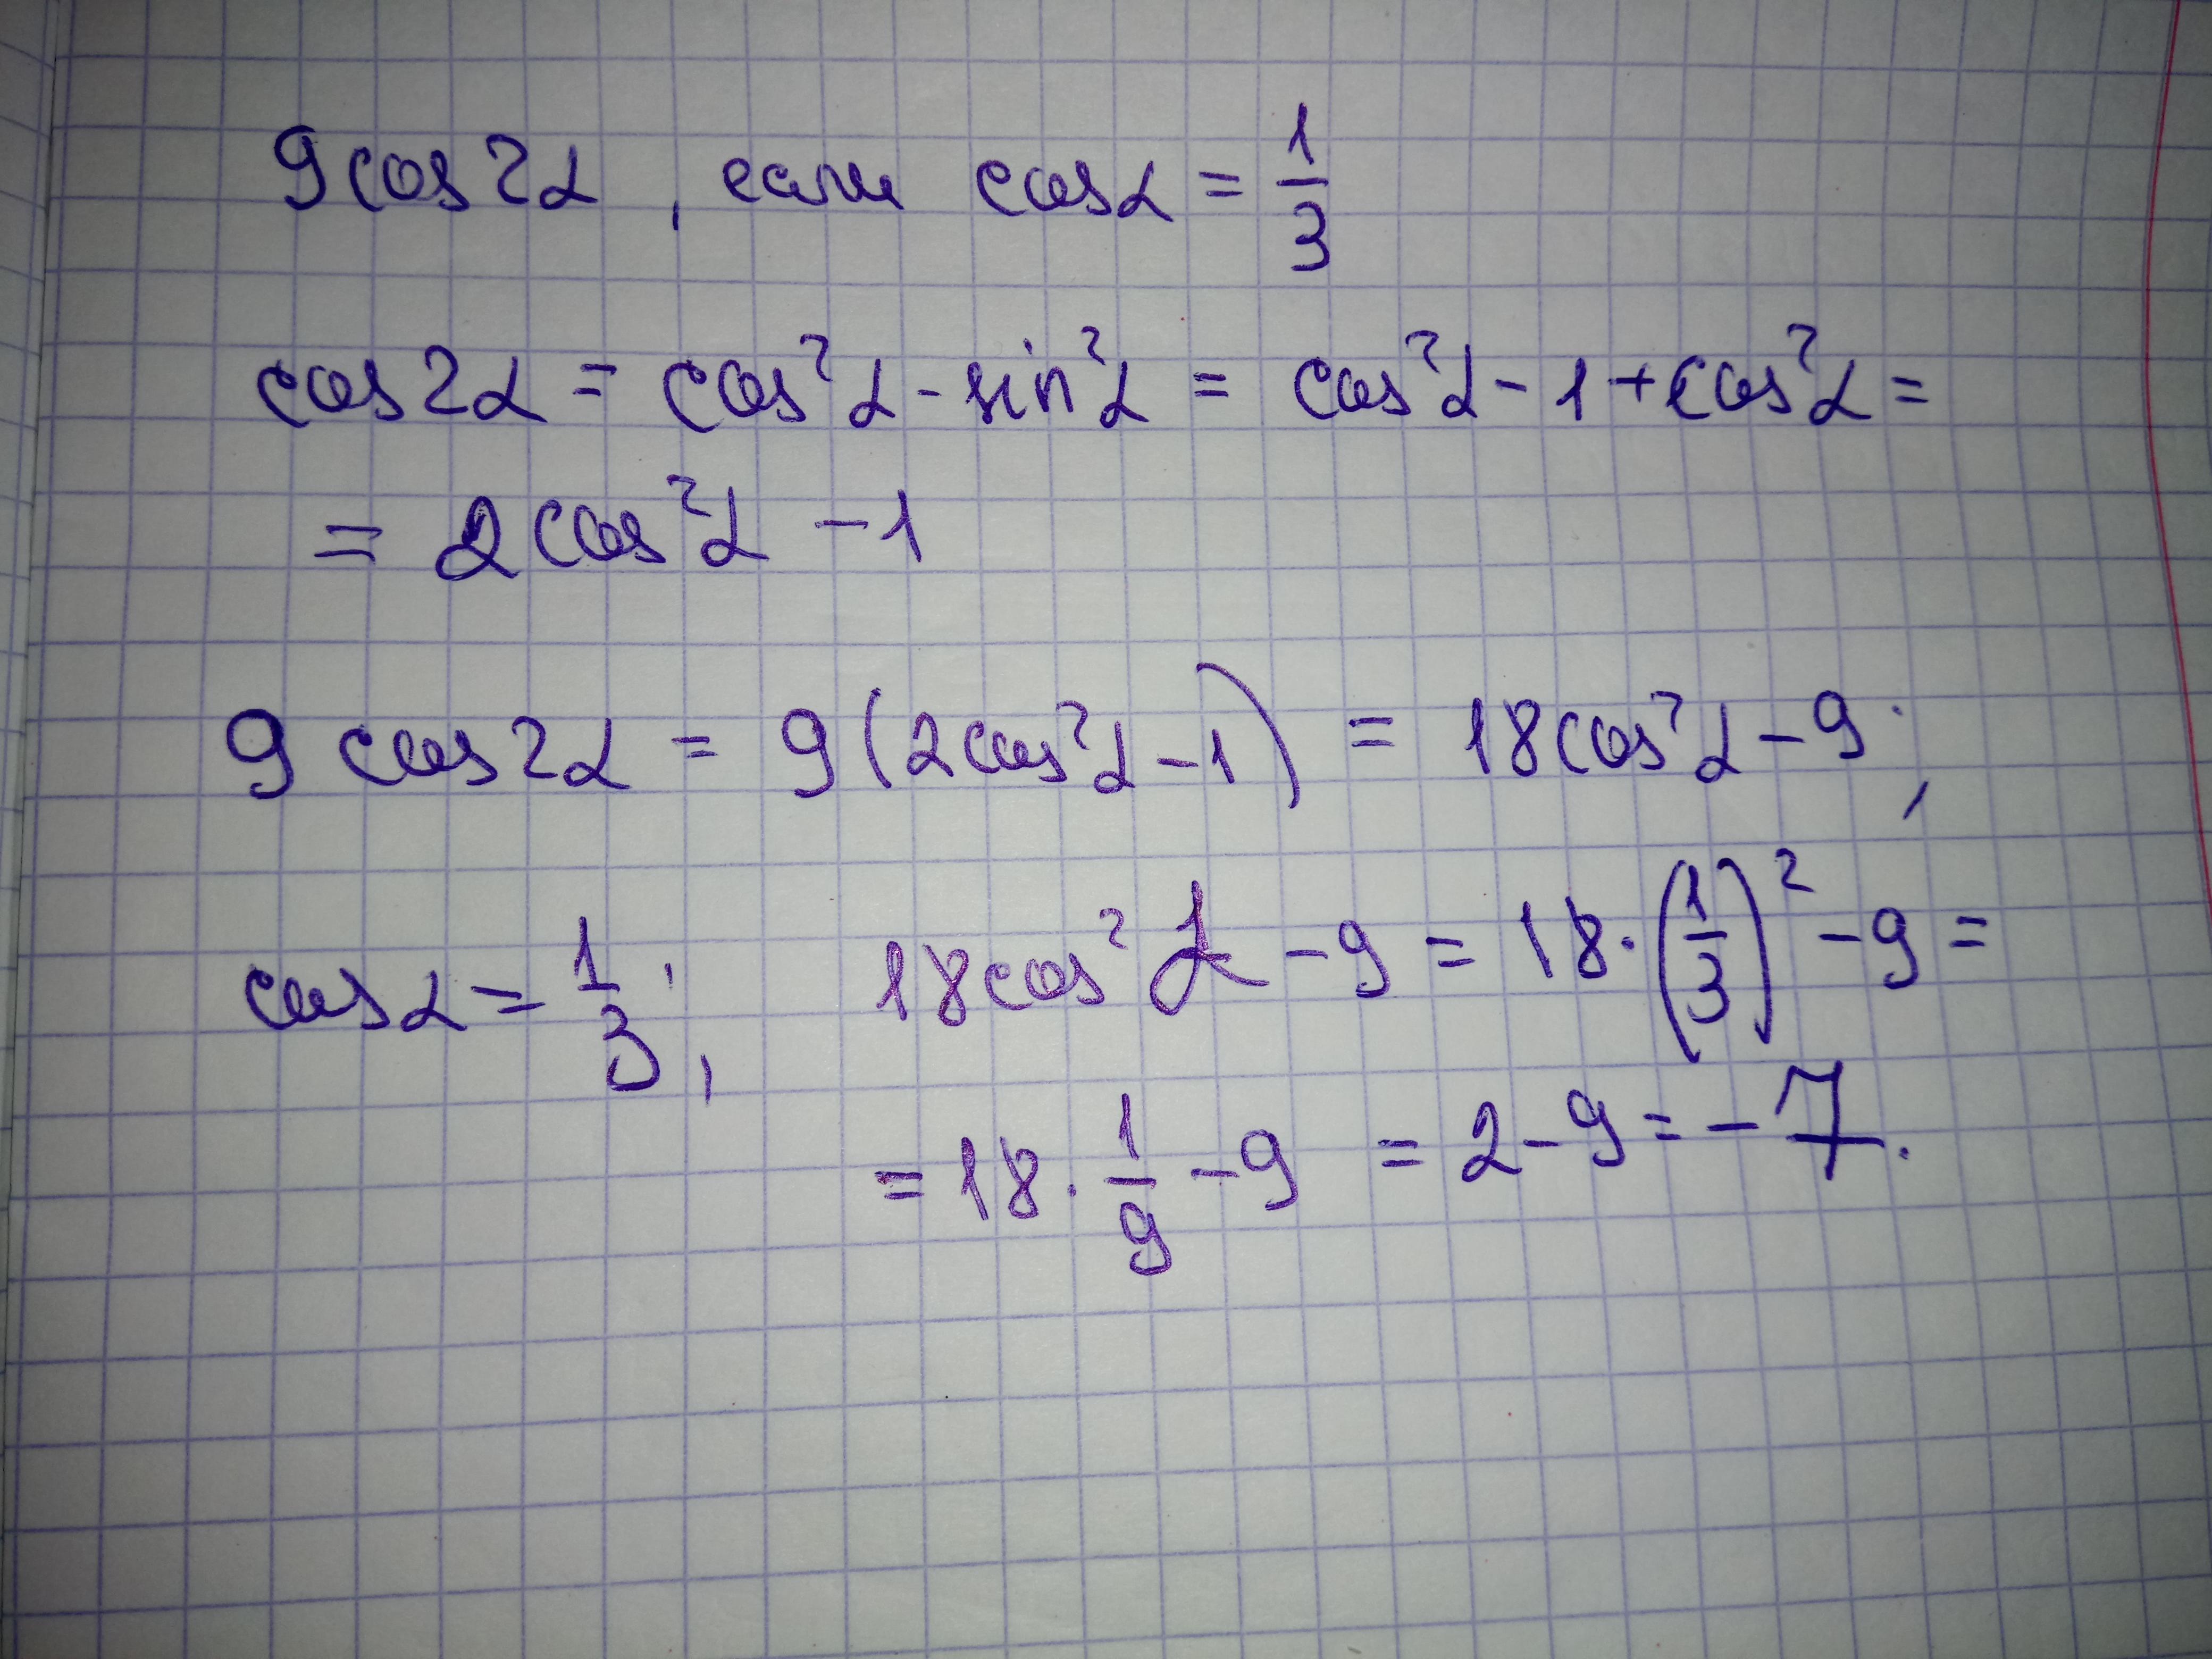 9cos2α, если cosα = 1/3
cos2α = cos²α - sin²α = cos²α - 1 + cos²α =
= 2cos²α - 1
9 cos2α = 9(2cos²α - 1) = 18cos²α - 9;
cosα = 1/3; 18cos²α - 9 = 18·(1/3)² - 9 =
= 18·1/9 - 9 = 2 - 9 = -7.